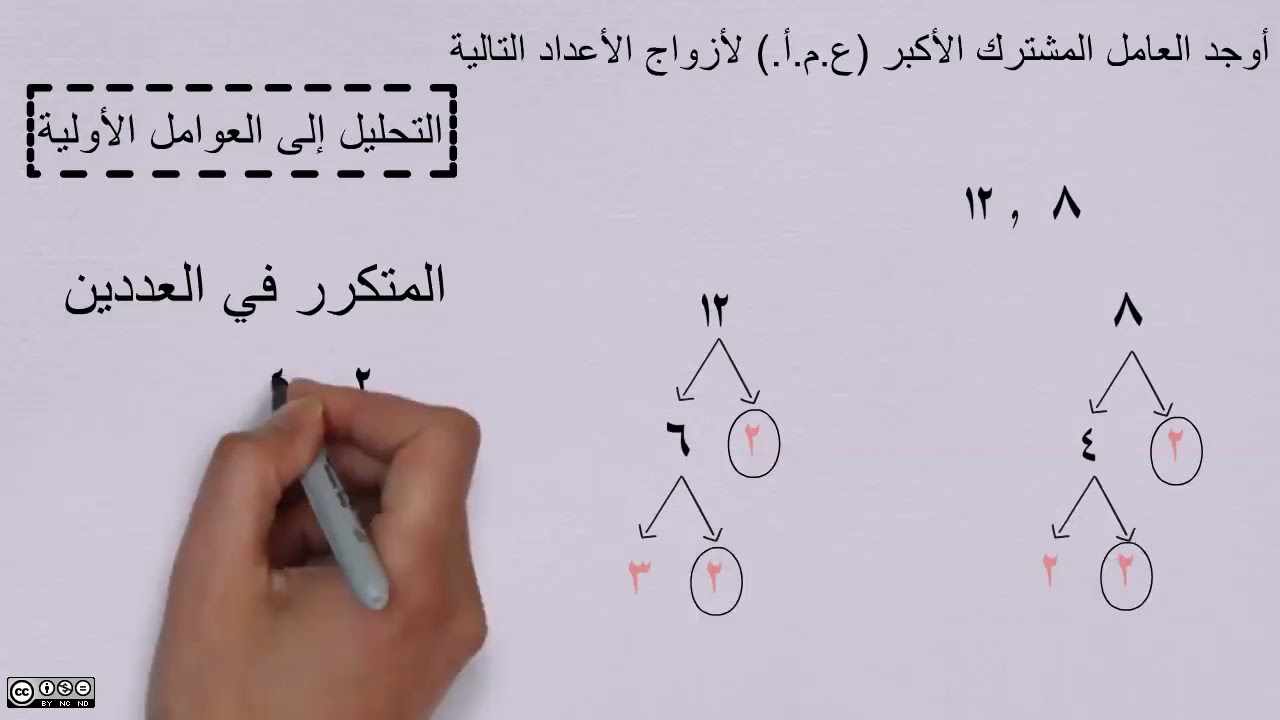 أوجد العامل المشترك الأكبر (ع.م.أ.) لأزواج الأعداد التالية
التحليل إلى العوامل الأولية
٨ , ١٢
المتكرر في العددين
٨
١٢
٢
٤
٢
٦
٢
٢
٢
٢
٣
cc BY NC ND